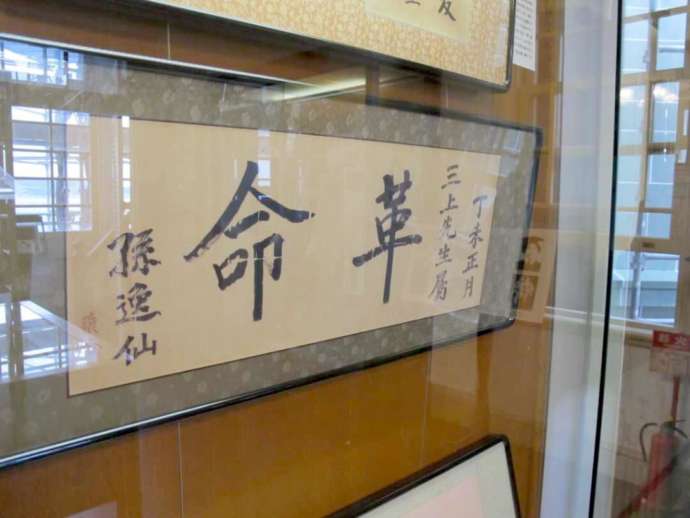 丁未正月
三上先生属
革命
孫逸仙